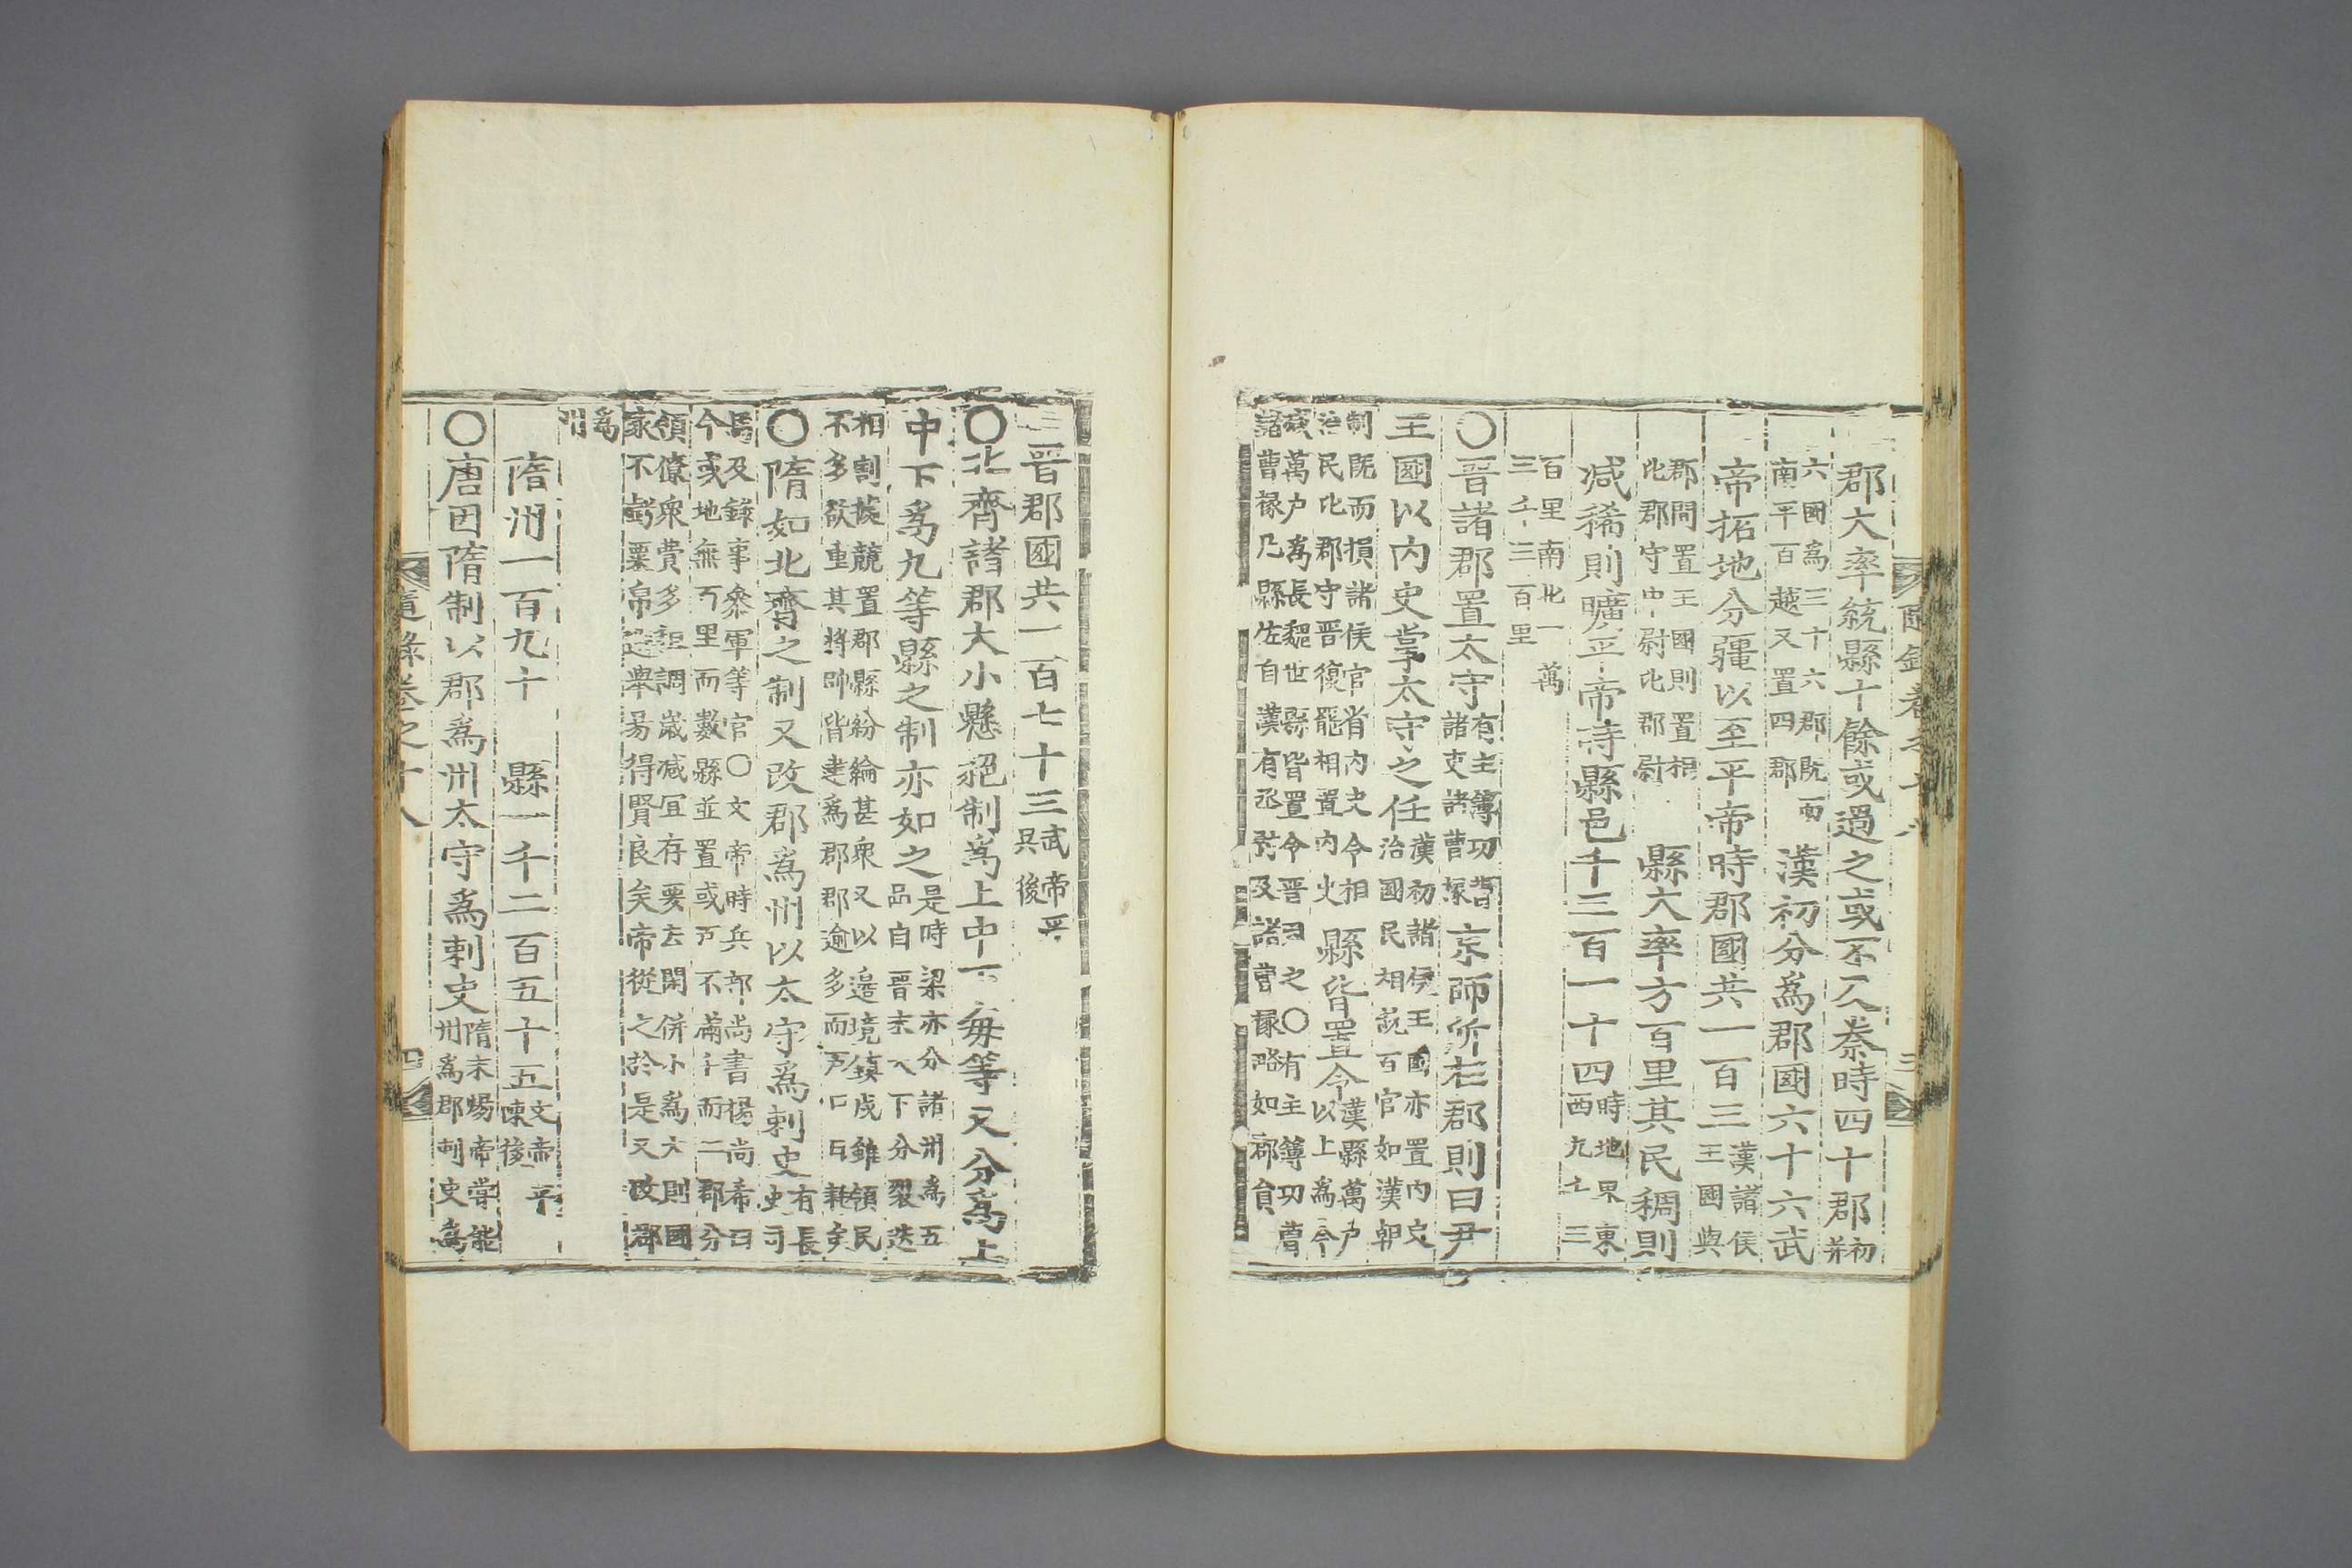 郡大率統縣十餘或過之或不及秦時四十郡初并
六國爲三十六郡旣而
南平百越又置四郡 漢初分爲郡國六十六武
帝拓地分疆以至平帝時郡國共一百三漢諸侯王國與
郡間置王國則置相
比郡守中尉比郡尉 縣大率方百里其民稠則
減稀則曠平帝時縣邑千三百一十四時地界東西九千三
百里南北一萬
三千三百里
〇晉諸郡置太守有主簿功曹諸吏諸曹掾京師所在郡則曰尹
王國以內史掌太守之任漢初諸侯王國亦置內史治國民相統百官如漢朝
制旣而損諸侯官省內史令相
治民比郡守晉復罷相置內史 縣皆置令漢縣萬户以上爲令
減萬户爲長魏世縣皆置令晉因之〇有主簿功曹
諸曹掾乃縣佐自漢有丞尉及諸曹掾略如郡員
三
晉郡國共一百七十三武帝平吳後
〇北齊諸郡大小懸絕制爲上中下每等又分爲上
中下爲九等縣之制亦如之是時梁亦分諸州爲五品自晉末以下分裂迭
相割據競置郡縣紛綸甚衆又以邊境鎮戍雖領民
不多欲重其將帥皆建爲郡郡逾多而戶口日耗矣
〇隋如北齊之制又改郡爲州以太守爲刺史有長史司
馬及錄事參軍等官〇文帝時兵部尚書楊尚希曰
今或地無百里而數縣並置或戶不滿千而二郡分
領僚衆費多租調歲減宜存要去閑併小爲大則國
家不虧粟帛選舉易得賢良矣帝從之於是又改郡
爲
州
隋州一百九十 縣一千二百五十五文帝平陳後
〇唐因隋制以郡爲州太守爲刺史隋末煬帝嘗罷州爲郡刺史爲
隨錄卷之十八
四